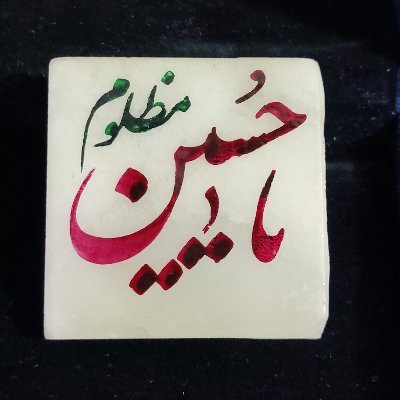 یا حُسین
مظلوم